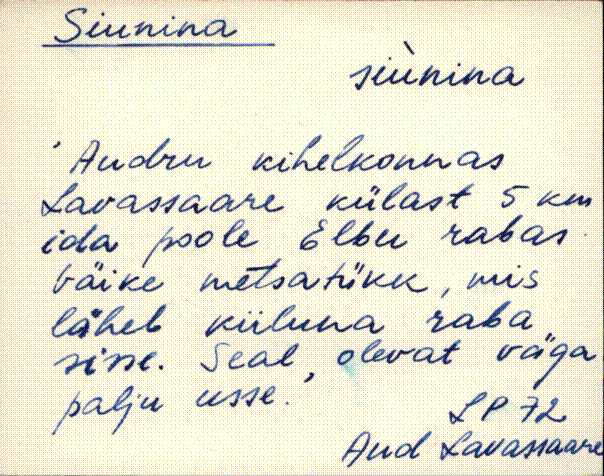 Siunina
siùnina
'Audru kihelkonnas
Lavassaare külast 5 km
ida poole Elbu rabas
väike metsatükk, mis
läheb kiiluna raba
sisse. Seal olevat väga
palju usse.'
LP 72
Aud Lavassaare